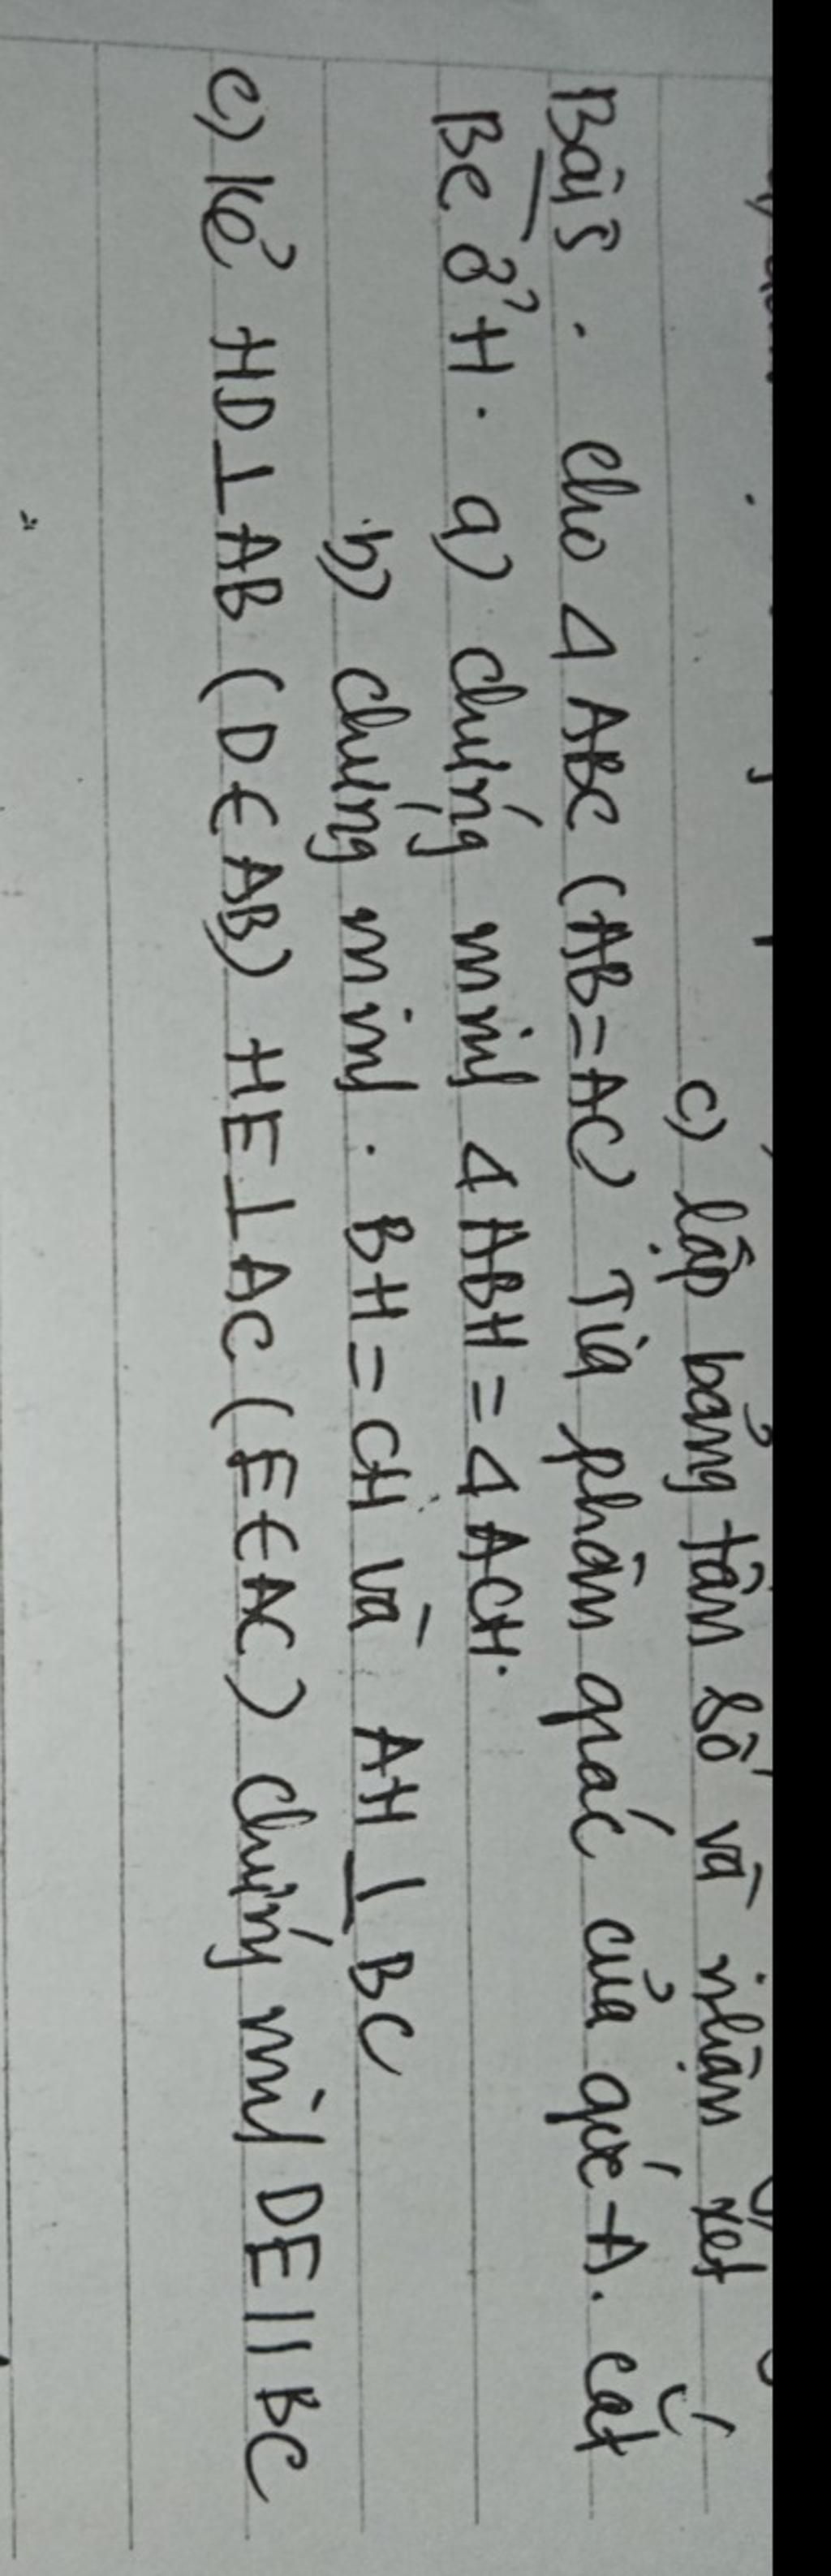 c) lập bảng tần số và nhận xét
Bài 5. cho Δ ABC (AB=AC) Tia phân giác của góc A. cắt
BC ở H. a) chứng minh Δ ABH = Δ ACH.
b) chứng minh. BH = CH và AH ⊥ BC
c) kẻ HD ⊥ AB (D ∈ AB) HE ⊥ AC (E ∈ AC) chứng minh DE || BC